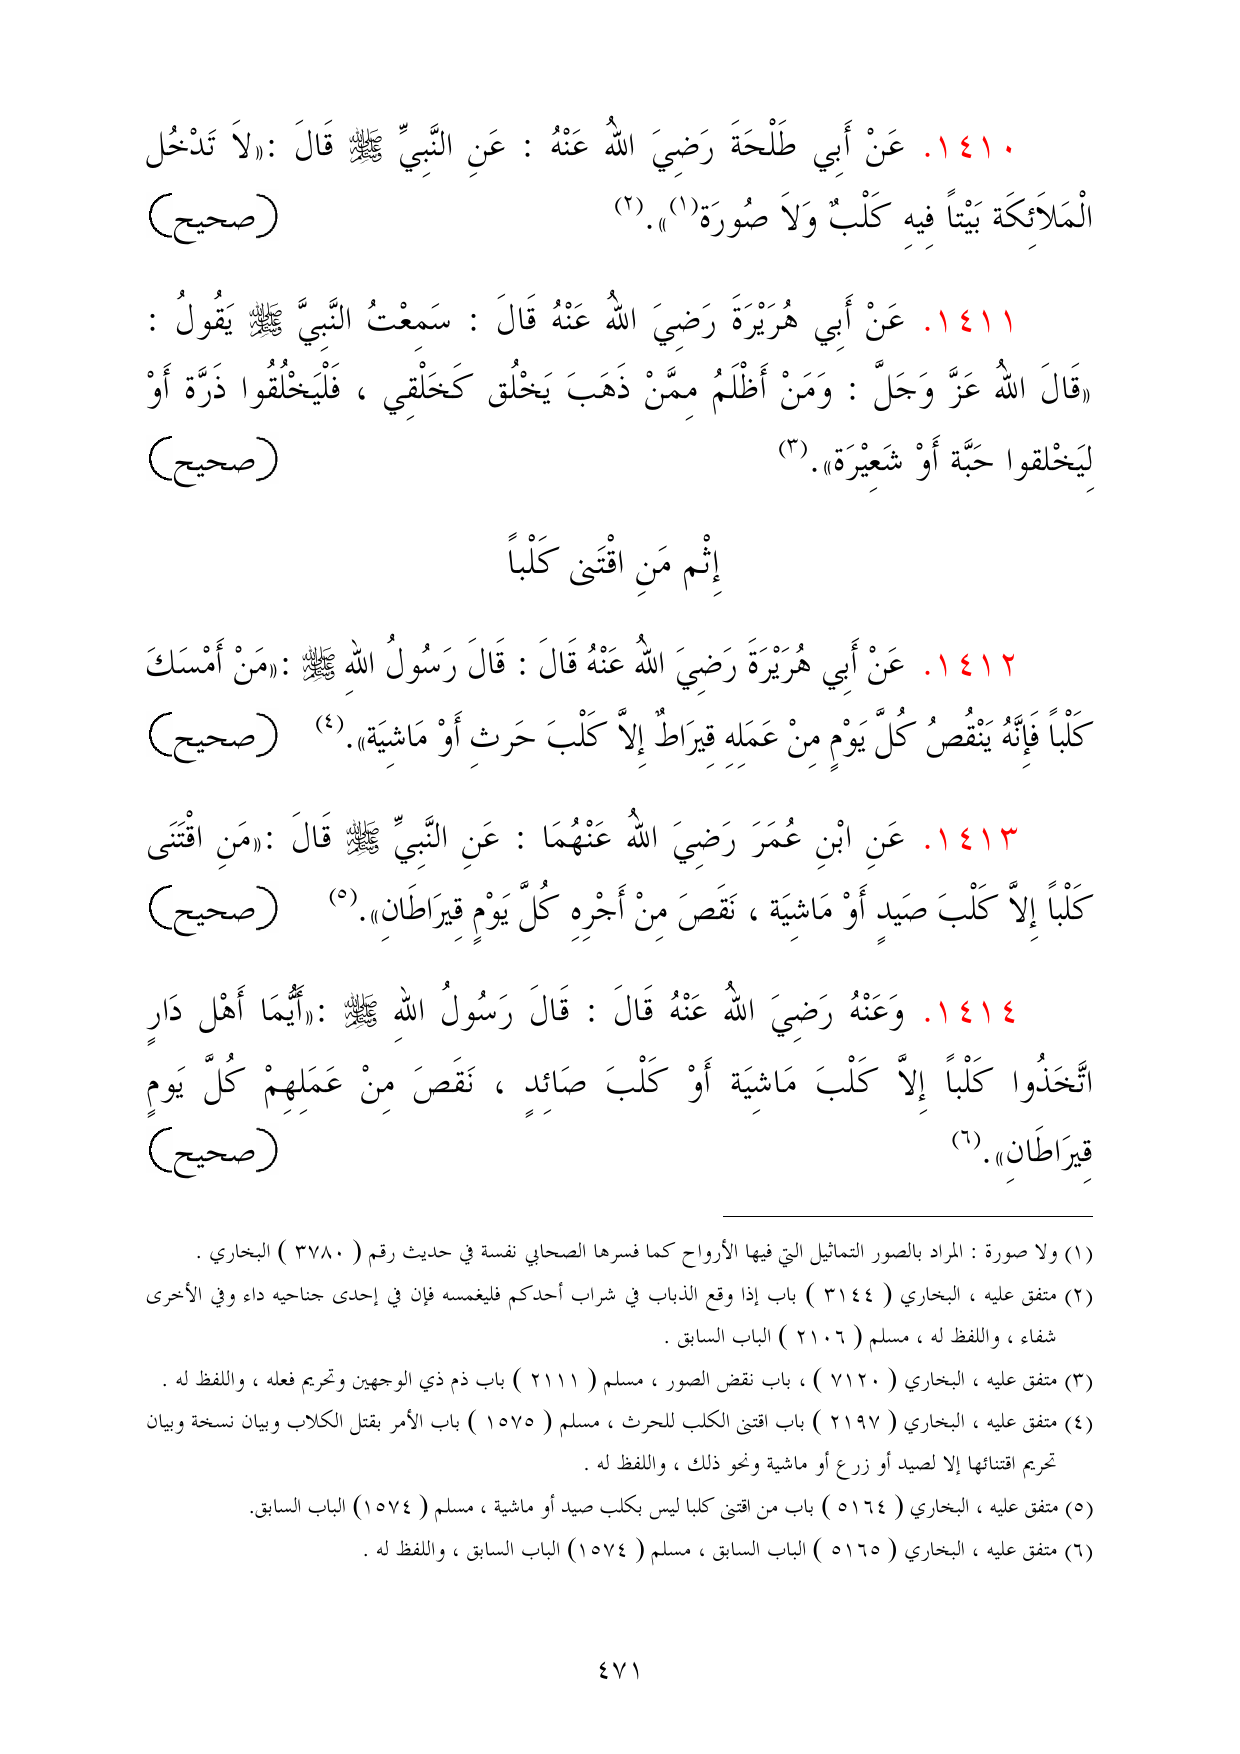 ١٤١٠. عَنْ أَبِي طَلْحَةَ رَضِيَ اللهُ عَنْهُ : عَنِ النَّبِيِّ ﷺ قَالَ :«لاَ تَدْخُل
الْمَلاَئِكَة بَيْتاً فِيهِ كَلْبٌ وَلاَ صُورَة(١)».(٢) (صحيح)
١٤١١. عَنْ أَبِي هُرَيْرَةَ رَضِيَ اللهُ عَنْهُ قَالَ : سَمِعْتُ النَّبِيَّ ﷺ يَقُولُ :
«قَالَ اللهُ عَزَّ وَجَلَّ : وَمَنْ أَظْلَمُ مِمَّنْ ذَهَبَ يَخْلُق كَخَلْقِي ، فَلْيَخْلُقُوا ذَرَّة أَوْ
لِيَخْلقوا حَبَّة أَوْ شَعِيْرَة».(٣) (صحيح)
إِثْم مَنِ اقْتَنى كَلْباً
١٤١٢. عَنْ أَبِي هُرَيْرَةَ رَضِيَ اللهُ عَنْهُ قَالَ : قَالَ رَسُولُ اللهِ ﷺ :«مَنْ أَمْسَكَ
كَلْباً فَإِنَّهُ يَنْقُصُ كُلَّ يَوْمٍ مِنْ عَمَلِهِ قِيرَاطٌ إِلاَّ كَلْبَ حَرثِ أَوْ مَاشِيَة».(٤) (صحيح)
١٤١٣. عَنِ ابْنِ عُمَرَ رَضِيَ اللهُ عَنْهُمَا : عَنِ النَّبِيِّ ﷺ قَالَ :«مَنِ اقْتَنَى
كَلْباً إِلاَّ كَلْبَ صَيدٍ أَوْ مَاشِيَة ، نَقَصَ مِنْ أَجْرِهِ كُلَّ يَوْمٍ قِيرَاطَانِ».(٥) (صحيح)
١٤١٤. وَعَنْهُ رَضِيَ اللهُ عَنْهُ قَالَ : قَالَ رَسُولُ اللهِ ﷺ :«أَيُّمَا أَهْل دَارٍ
اتَّخَذُوا كَلْباً إِلاَّ كَلْبَ مَاشِيَة أَوْ كَلْبَ صَائِدٍ ، نَقَصَ مِنْ عَمَلِهِمْ كُلَّ يَومٍ
قِيرَاطَانِ».(٦) (صحيح)
(١) ولا صورة : المراد بالصور التماثيل التي فيها الأرواح كما فسرها الصحابي نفسة في حديث رقم ( ٣٧٨٠ ) البخاري .
(٢) متفق عليه ، البخاري ( ٣١٤٤ ) باب إذا وقع الذباب في شراب أحدكم فليغمسه فإن في إحدى جناحيه داء وفي الأخرى
شفاء ، واللفظ له ، مسلم ( ٢١٠٦ ) الباب السابق .
(٣) متفق عليه ، البخاري ( ٧١٢٠ ) ، باب نقض الصور ، مسلم ( ٢١١١ ) باب ذم ذي الوجهين وتحريم فعله ، واللفظ له .
(٤) متفق عليه ، البخاري ( ٢١٩٧ ) باب اقتنى الكلب للحرث ، مسلم ( ١٥٧٥ ) باب الأمر بقتل الكلاب وبيان نسخة وبيان
تحريم اقتنائها إلا لصيد أو زرع أو ماشية ونحو ذلك ، واللفظ له .
(٥) متفق عليه ، البخاري ( ٥١٦٤ ) باب من اقتنى كلبا ليس بكلب صيد أو ماشية ، مسلم ( ١٥٧٤) الباب السابق.
(٦) متفق عليه ، البخاري ( ٥١٦٥ ) الباب السابق ، مسلم ( ١٥٧٤) الباب السابق ، واللفظ له .
٤٧١